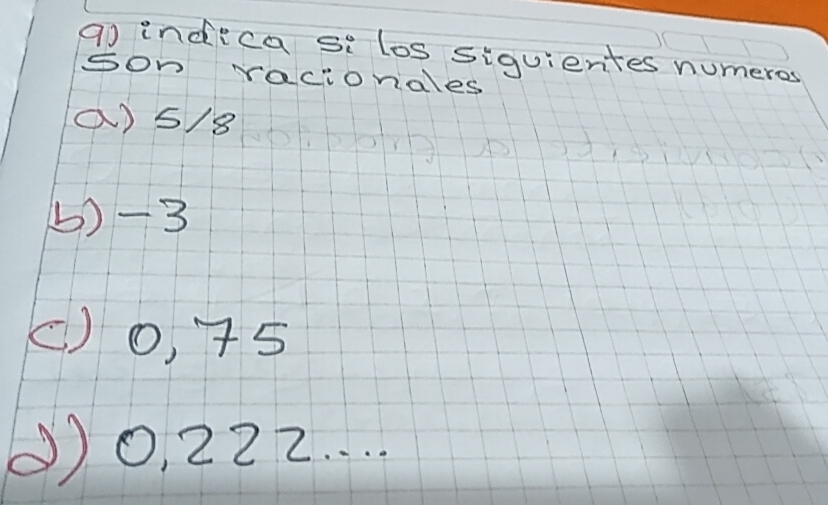 9) indica si los siguientes numeros
son racionales
a) 5/8
b) -3
c) 0,75
d) 0,222....